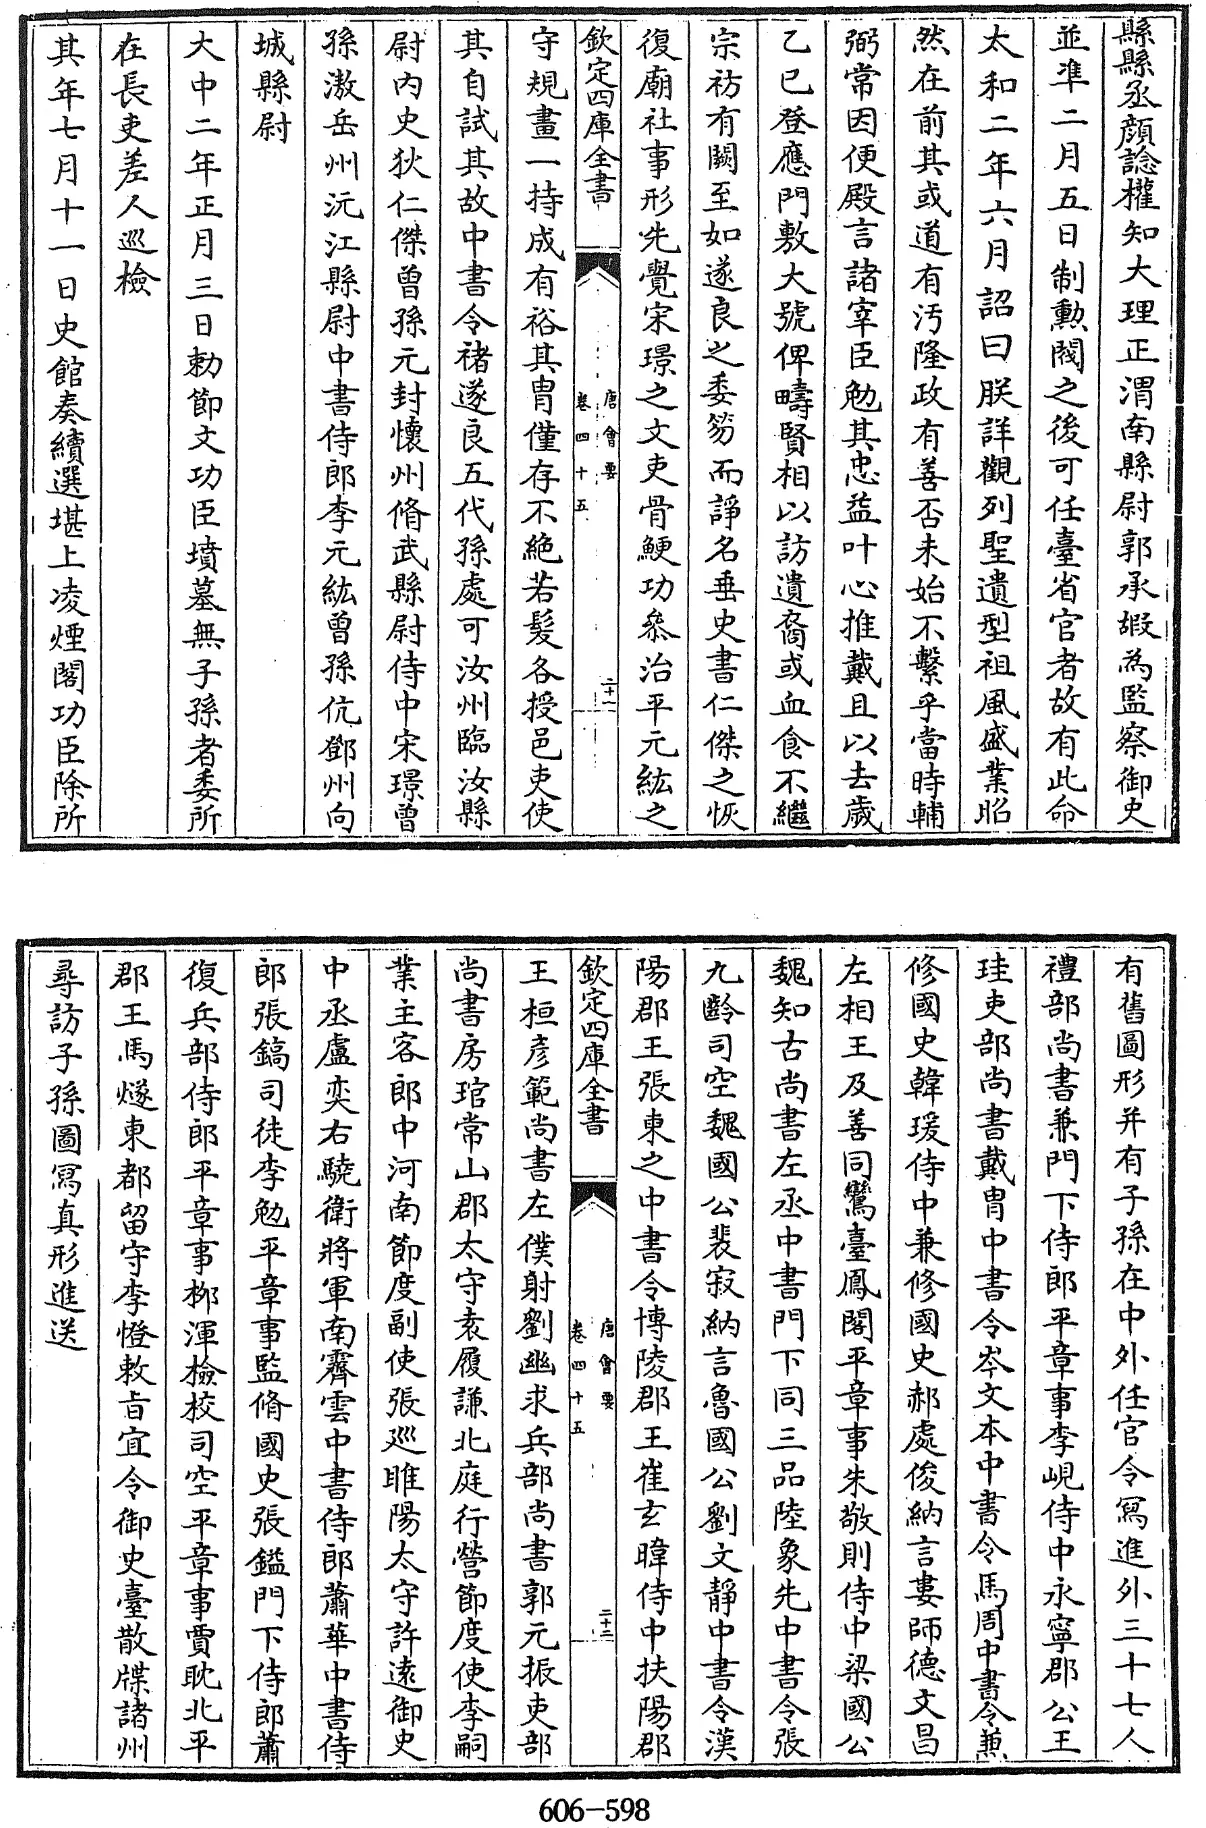 縣縣丞顔諗權知大理正渭南縣尉郭承嘏為監察御史
並準二月五日制勳閥之後可任臺省官者故有此命
太和二年六月詔曰朕詳觀列聖遺型祖風盛業昭
然在前其或道有汚隆政有善否未始不繫乎當時輔
弼常因便殿言諸宰臣勉其忠益叶心推戴且以去歲
乙巳登應門敷大號俾疇賢相以訪遺裔或血食不繼
宗祊有闕至如遂良之委笏而諍名垂史書仁傑之恢
復廟社事形先覺宋璟之文吏骨鯁功叅治平元紘之
欽定四庫全書
唐會要
卷四十五
二十一
守規畫一持成有裕其胄僅存不絶若髮各授邑吏使
其自試其故中書令褚遂良五代孫處可汝州臨汝縣
尉内史狄仁傑曾孫元封懷州脩武縣尉侍中宋璟曾
孫漵岳州沅江縣尉中書侍郎李元紘曾孫伉鄧州向
城縣尉
大中二年正月三日勅節文功臣墳墓無子孫者委所
在長吏差人巡檢
其年七月十一日史館奏續選堪上凌煙閣功臣除所
有舊圖形并有子孫在中外任官令寫進外三十七人
禮部尚書兼門下侍郎平章事李峴侍中永寧郡公王
珪吏部尚書戴胄中書令岑文本中書令馬周中書令兼
修國史韓瑗侍中兼修國史郝處俊納言婁師德文昌
左相王及善同鸞臺鳳閣平章事朱敬則侍中梁國公
魏知古尚書左丞中書門下同三品陸象先中書令張
九齡司空魏國公裴寂納言魯國公劉文靜中書令漢
陽郡王張柬之中書令博陵郡王崔玄暐侍中扶陽郡
欽定四庫全書
唐會要
卷四十五
二十二
王桓彦範尚書左僕射劉幽求兵部尚書郭元振吏部
尚書房琯常山郡太守袁履謙北庭行營節度使李嗣
業主客郎中河南節度副使張廵睢陽太守許逺御史
中丞盧奕右驍衛將軍南霽雲中書侍郎蕭華中書侍
郎張鎬司徒李勉平章事監脩國史張鎰門下侍郎蕭
復兵部侍郎平章事柳渾檢校司空平章事賈耽北平
郡王馬燧東都留守李憕敕旨宜令御史臺散牒諸州
尋訪子孫圖寫真形進送
606-598